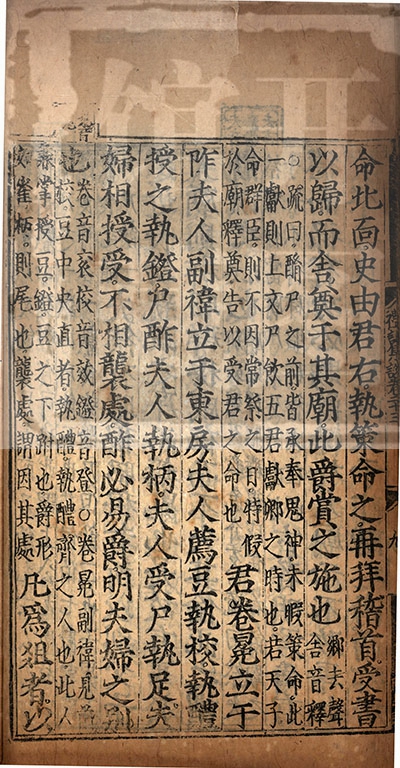 命北面。史由君右。執策命之。再拜稽首。受書
以歸。而舍奠于其廟。此爵賞之施也。鄉去聲
舍音釋
○疏曰。酳尸之前。皆承奉鬼神。未暇策命。此
一獻。則上文尸飲五。君獻卿之時也。若天子
命群臣。則不因常祭之日。特假
於廟釋奠。告以受君之命也 君卷冕立于
阼。夫人副褘立于東房。夫人薦豆執校。執醴
授之執鐙。尸酢夫人執柄。夫人受尸執足。夫
婦相授受。不相襲處。酢必易爵。明夫婦之別
也 卷音衮校音效鐙音登○卷冕副褘見前
也校豆中央直者執醴。執醴齊之人也此人
兼掌授豆。鐙。豆之下跗也。爵形
如雀柄。則尾也。襲處。謂因其處 凡爲俎者。以